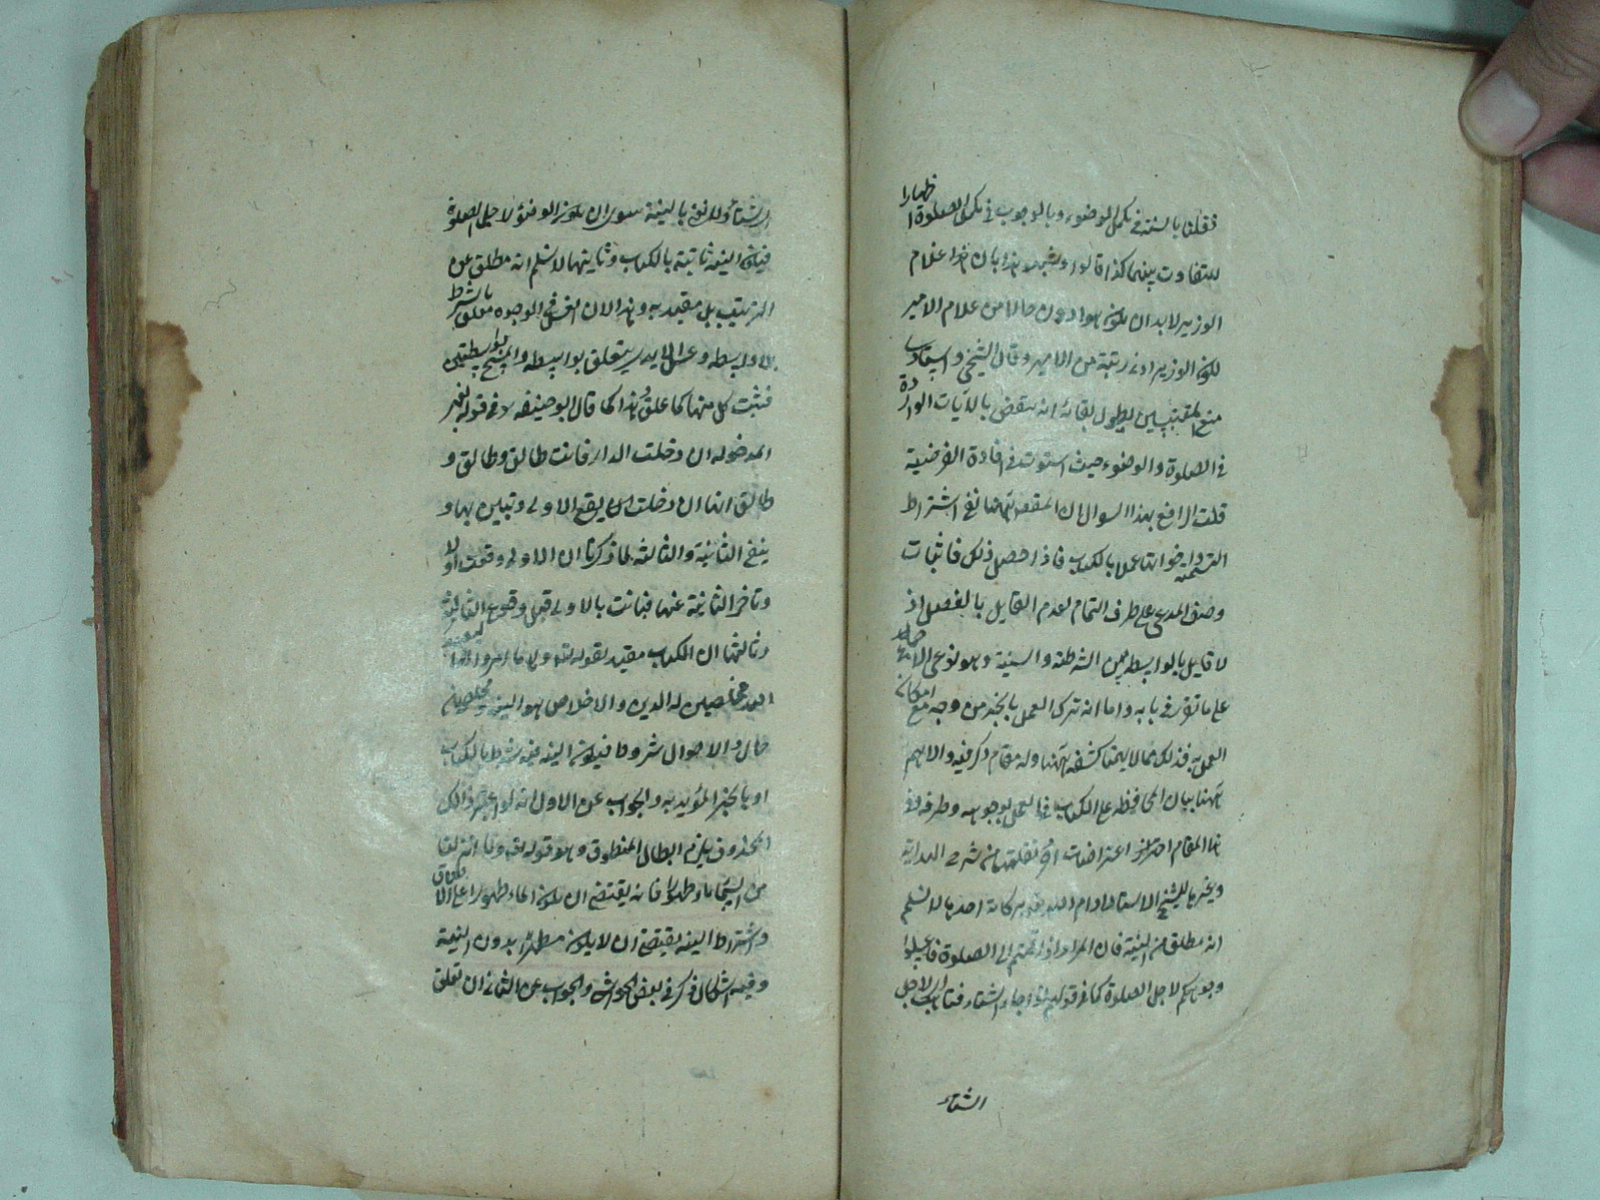 فقلنا بالسنة في مكمل الوضوء وبالوجوب في مكمل الصلوة اظهارا
للتفاوت بينهما كذا قالوا ويشهد هذا بان هذا غلام
الوزير لابد ان يكون هو ادون حالا من غلام الامير
لكون الوزير ادنى رتبة من الامير وقال الشيخي واستادي
منع المقتبسين بطول بقائه انه ينقض بالايات الواردة
في الصلوة والوضوء حيث استوت في افادة الفرضية
قلت الرافع بهذا السوال ان المقصد نفي اشتراط
التسمية واخواتها عملا بالكتاب فاذا حصل ذلك فاثبات
وصف المدعى على طرف التمام لعدم القايل بالفصل اذ
لا قايل بالواسطة بين الشرطية والسنية وهو نوع الاجماع
على ما تقرر في بابه واما انه ترك العمل بالخبر من وجه مع امكان
العمل به فذلك مما لا يهمنا كشفه ههنا وله مقام ذكر فيه والاهم
ههنا بيان المحافظة على الكتاب في العمل بوجوبه وطرفه وفي
هذا المقام اعتراضات نقلتها من شرح الهداية
وغيرها للشيخ الاستاد ادام الله بركاته احدها لا نسلم
انه مطلق عن النية فان المراد اذا قمتم الى الصلوة فاغسلوا
وجوهكم لاجل الصلوة كما في قولهم اذا جاء الشتاء فتاهب اي لاجل
الشتاء
الشتاء ولا نعني بالنية سوى ان يكون الوضوء لاجل الصلوة
فيكون النية ثابتة بالكتاب وثانيها لا نسلم انه مطلق عن
الترتيب بل مقيد به وهذا لان الغسل في الوجوه معلق بالشرط
بلا واسطة وغسل الايدي يتعلق بواسطة والمسح بواسطتين
فثبت كل منها كما علق هذا كما قال ابو حنيفة رح في قوله لغير
المدخولة ان دخلت الدار فانت طالق وطالق و
طالق انها ان دخلت يقع الاولى وتبين بها و
يلغ الثانية والثالثة لما ذكرنا ان الاولى وقعت اولا
وتاخر الثانية عنها فبانت بالاولى قبل وقوع الثانية
وثالثها ان الكتاب مقيد بقوله تع وما امروا الا ليعبدوا
الله مخلصين له الدين والاخلاص هو النية ومخلصين
حال والاحوال شروط فيكون النية شرطا بالكتاب
او بالخبر المؤيد به والجواب عن الاول انه لو اعتبر ذلك
المحذوف يلزم ابطال المنطوق وهو قوله تع وانزلنا
من السماء ماء طهورا فانه يقتضي ان يكون الماء طهورا على الاطلاق
واشتراط النية يقتضي ان لا يكون مطهرا بدون النية
وفيه اشكال ذكر في بعض الحواشي والجواب عن الثاني ان تعلق